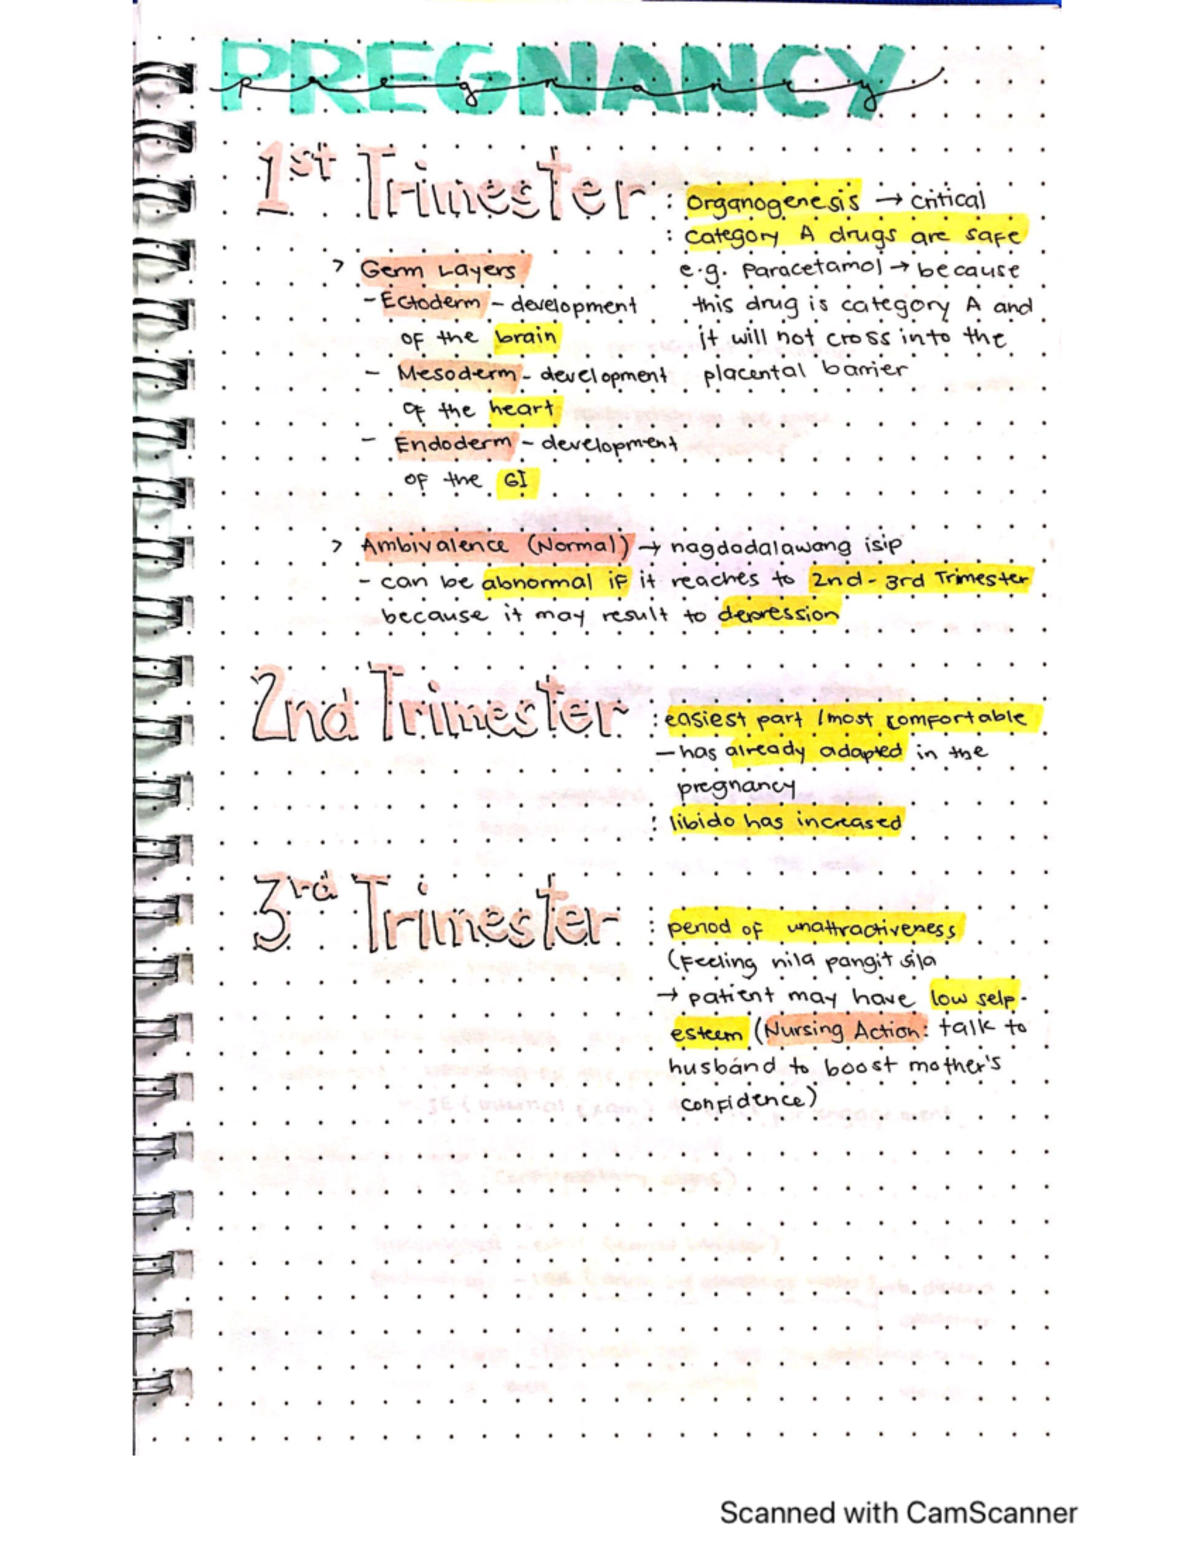 PREGNANCY
pregnancy
1st Trimester : organogenesis → critical
: category A drugs are safe
e.g. Paracetamol → because
this drug is category A and
it will not cross into the
placental barrier
> Germ Layers
- Ectoderm - development
of the brain
- Mesoderm - development
of the heart
- Endoderm - development
of the GI
> Ambivalence (Normal) → nagdadalawang isip
- can be abnormal if it reaches to 2nd - 3rd Trimester
because it may result to depression
2nd Trimester : easiest part / most comfortable
- has already adapted in the
pregnancy
: libido has increased
3rd Trimester : period of unattractiveness
(Feeling nila pangit sila
→ patient may have low self-
esteem (Nursing Action: talk to
husband to boost mother's
confidence)
Scanned with CamScanner